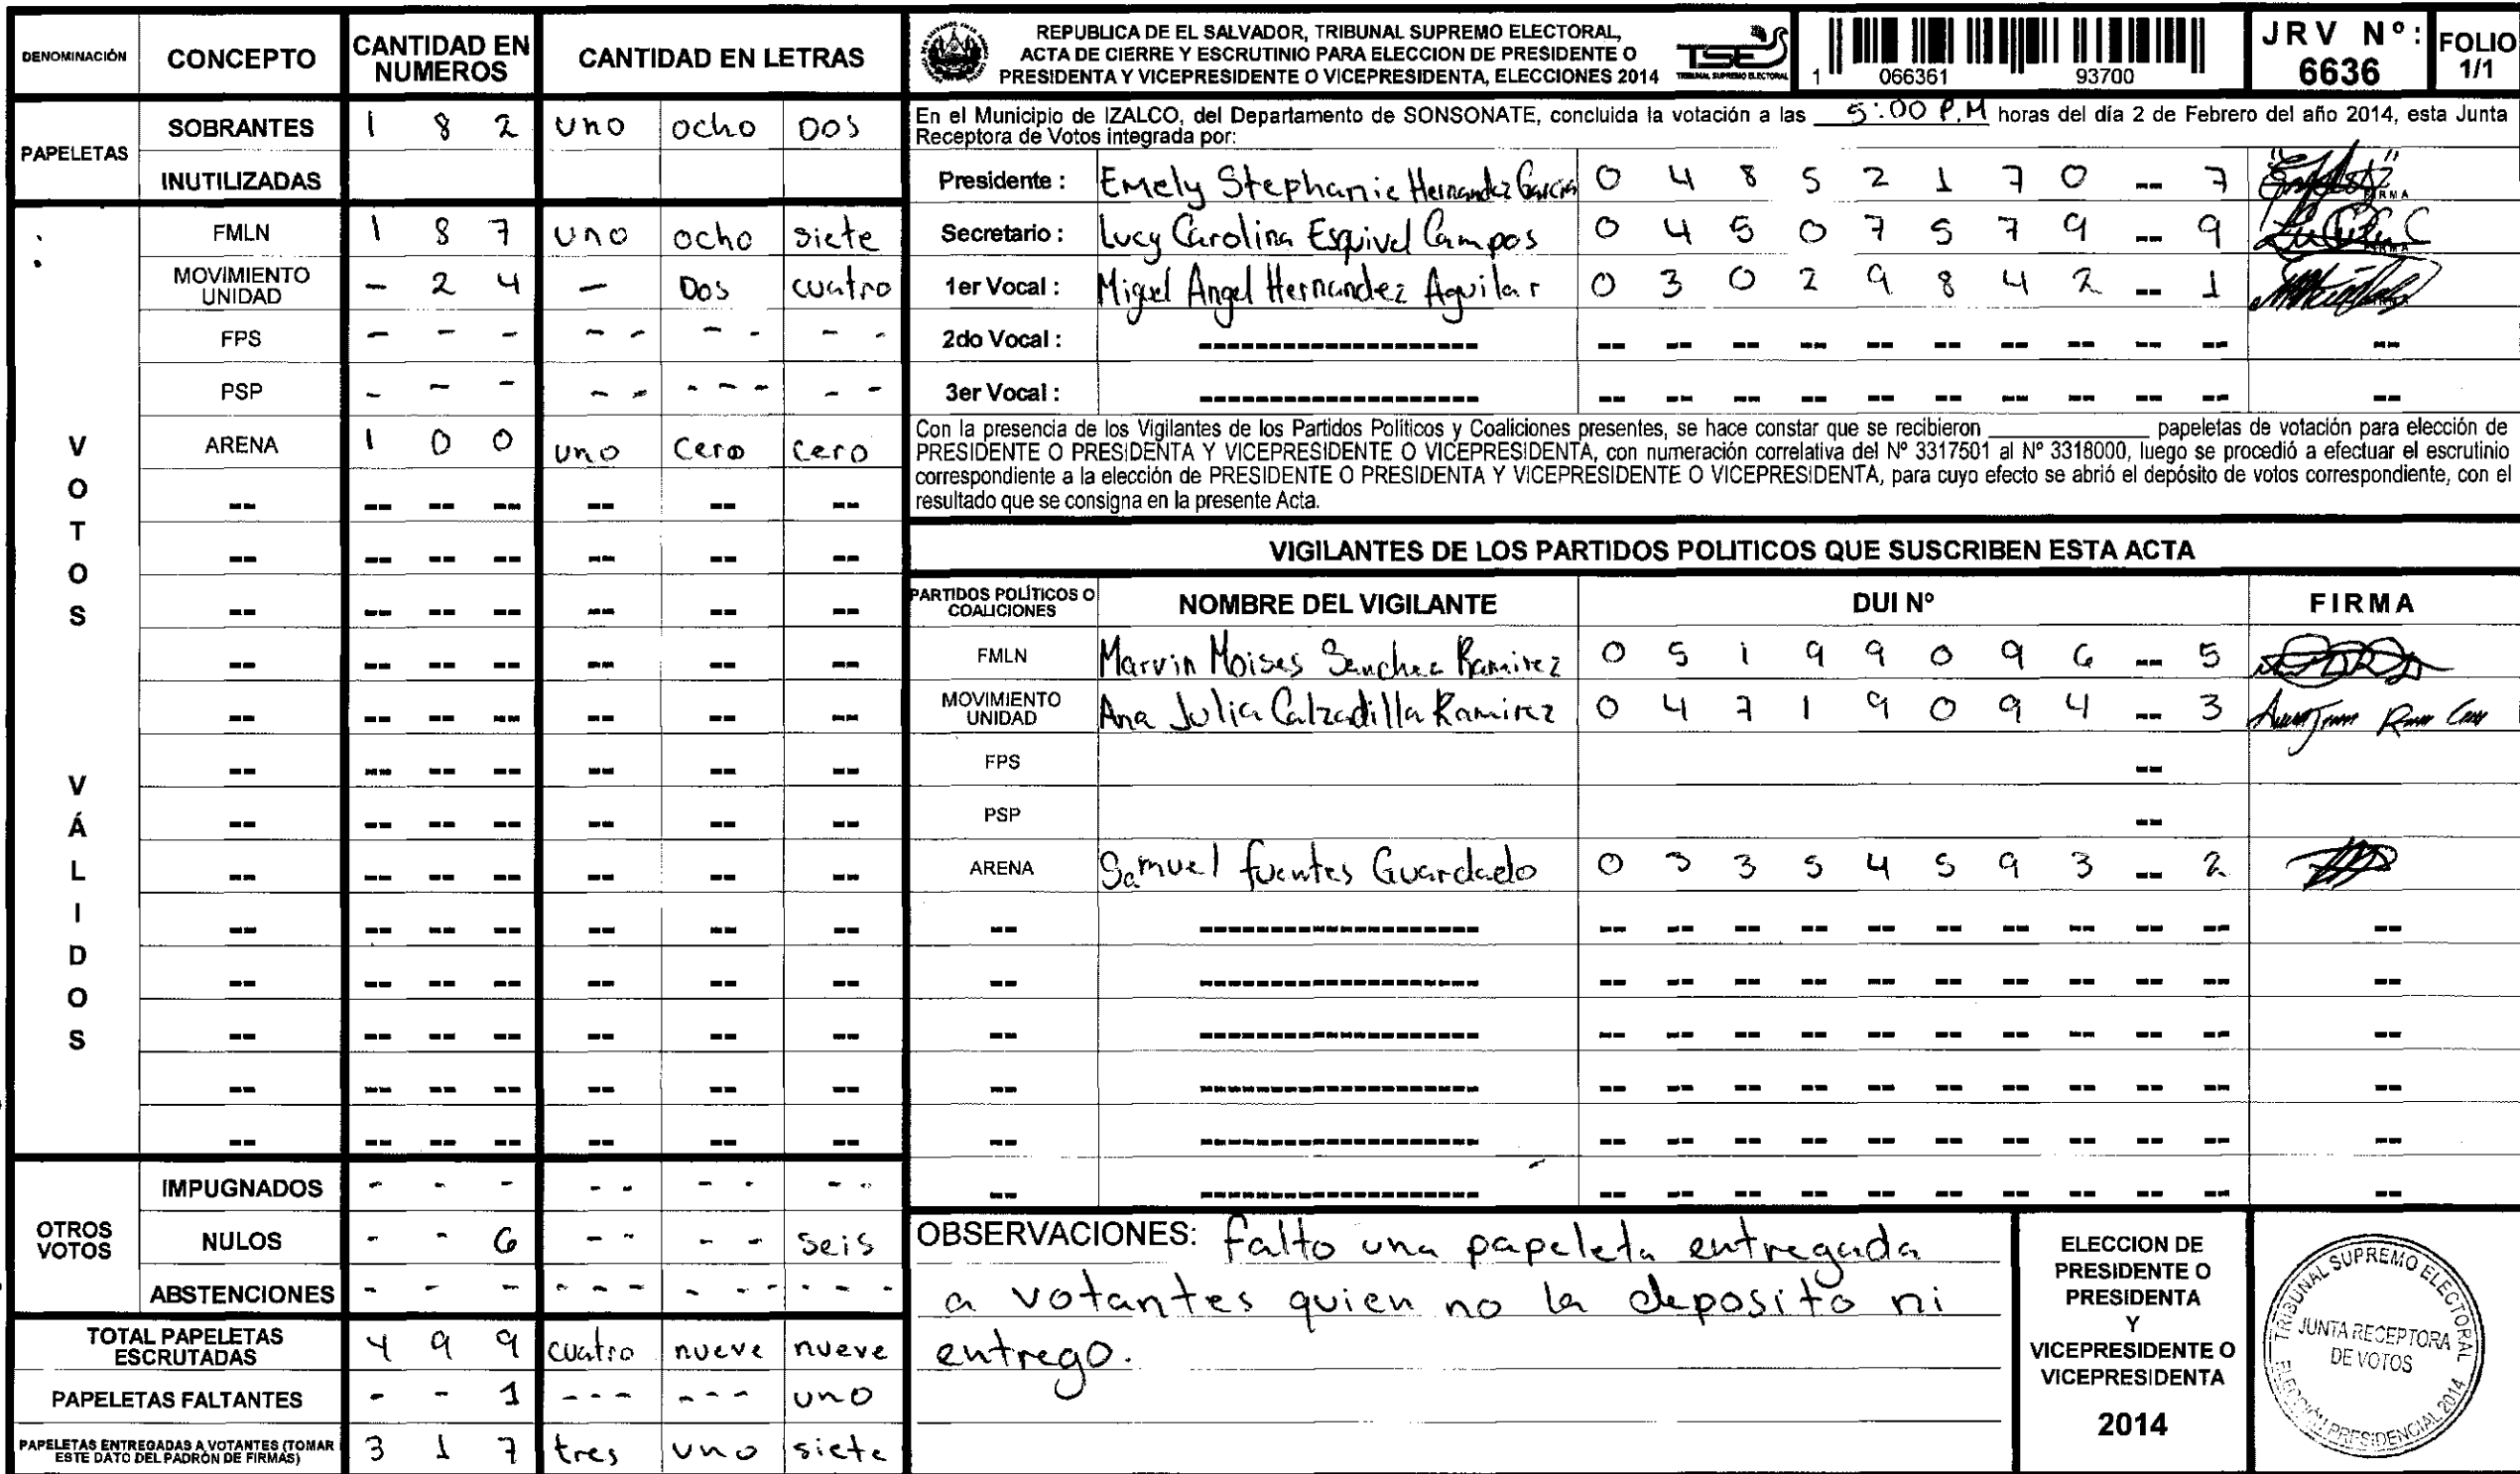 DENOMINACIÓN CONCEPTO CANTIDAD EN NUMEROS CANTIDAD EN LETRAS
PAPELETAS
SOBRANTES 1 8 2 uno ocho DOS
INUTILIZADAS
VOTOS VÁLIDOS
FMLN 1 8 7 uno ocho siete
MOVIMIENTO UNIDAD - 2 4 - Dos cuatro
FPS - - - - - - - - -
PSP - - - - - - - - - - -
ARENA 1 0 0 uno Cero Cero
-- -- -- -- -- -- --
-- -- -- -- -- -- --
-- -- -- -- -- -- --
-- -- -- -- -- -- --
-- -- -- -- -- -- --
-- -- -- -- -- -- --
-- -- -- -- -- -- --
-- -- -- -- -- -- --
-- -- -- -- -- -- --
-- -- -- -- -- -- --
-- -- -- -- -- -- --
-- -- -- -- -- -- --
-- -- -- -- -- -- --
OTROS VOTOS
IMPUGNADOS - - - - - - - - -
NULOS - - 6 - - - - seis
ABSTENCIONES - - - - - - - - - - - -
TOTAL PAPELETAS ESCRUTADAS 4 9 9 cuatro nueve nueve
PAPELETAS FALTANTES - - 1 - - - - - - uno
PAPELETAS ENTREGADAS A VOTANTES (TOMAR ESTE DATO DEL PADRÓN DE FIRMAS) 3 1 7 tres uno siete
REPUBLICA DE EL SALVADOR, TRIBUNAL SUPREMO ELECTORAL,
ACTA DE CIERRE Y ESCRUTINIO PARA ELECCION DE PRESIDENTE O
PRESIDENTA Y VICEPRESIDENTE O VICEPRESIDENTA, ELECCIONES 2014
TSE
TRIBUNAL SUPREMO ELECTORAL
1 066361 93700
JRV Nº: 6636
FOLIO 1/1
En el Municipio de IZALCO, del Departamento de SONSONATE, concluida la votación a las 5:00 P.M horas del día 2 de Febrero del año 2014, esta Junta
Receptora de Votos integrada por:
Presidente : Emely Stephanie Hernandez Garcia 0 4 8 5 2 1 7 0 -- 7 FIRMA
Secretario : Lucy Carolina Esquivel Campos 0 4 5 0 7 5 7 9 -- 9
1er Vocal : Miguel Angel Hernandez Aguilar 0 3 0 2 9 8 4 2 -- 1
2do Vocal : ------------------- -- -- -- -- -- -- -- -- -- -- --
3er Vocal : ------------------- -- -- -- -- -- -- -- -- -- -- --
Con la presencia de los Vigilantes de los Partidos Políticos y Coaliciones presentes, se hace constar que se recibieron ____________ papeletas de votación para elección de
PRESIDENTE O PRESIDENTA Y VICEPRESIDENTE O VICEPRESIDENTA, con numeración correlativa del Nº 3317501 al Nº 3318000, luego se procedió a efectuar el escrutinio
correspondiente a la elección de PRESIDENTE O PRESIDENTA Y VICEPRESIDENTE O VICEPRESIDENTA, para cuyo efecto se abrió el depósito de votos correspondiente, con el
resultado que se consigna en la presente Acta.
VIGILANTES DE LOS PARTIDOS POLITICOS QUE SUSCRIBEN ESTA ACTA
PARTIDOS POLÍTICOS O COALICIONES NOMBRE DEL VIGILANTE DUI Nº FIRMA
FMLN Marvin Moises Sanchez Ramirez 0 5 1 9 9 0 9 6 -- 5
MOVIMIENTO UNIDAD Ana Julia Calzadilla Ramirez 0 4 7 1 9 0 9 4 -- 3
FPS --
PSP --
ARENA Samuel fuentes Guardado 0 3 3 5 4 5 9 3 -- 2
-- ------------------- -- -- -- -- -- -- -- -- -- -- --
-- ------------------- -- -- -- -- -- -- -- -- -- -- --
-- ------------------- -- -- -- -- -- -- -- -- -- -- --
-- ------------------- -- -- -- -- -- -- -- -- -- -- --
-- ------------------- -- -- -- -- -- -- -- -- -- -- --
-- ------------------- -- -- -- -- -- -- -- -- -- -- --
OBSERVACIONES: falto una papeleta entregada
a votantes quien no la deposito ni
entrego.
ELECCION DE
PRESIDENTE O
PRESIDENTA
Y
VICEPRESIDENTE O
VICEPRESIDENTA
2014
TRIBUNAL SUPREMO ELECTORAL
JUNTA RECEPTORA
DE VOTOS
ELECCIÓN PRESIDENCIAL 2014